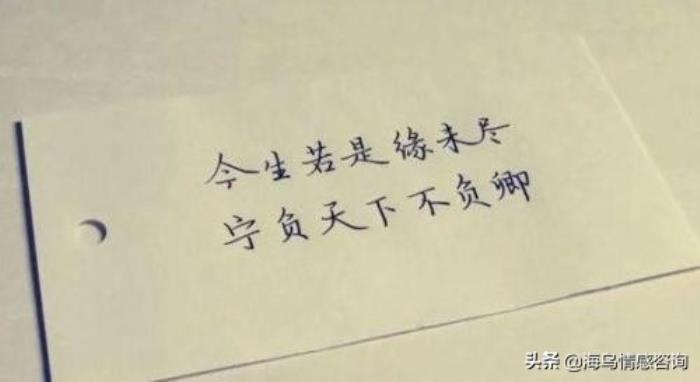 今生若是缘未尽
宁负天下不负卿
头条 @海乌情感咨询